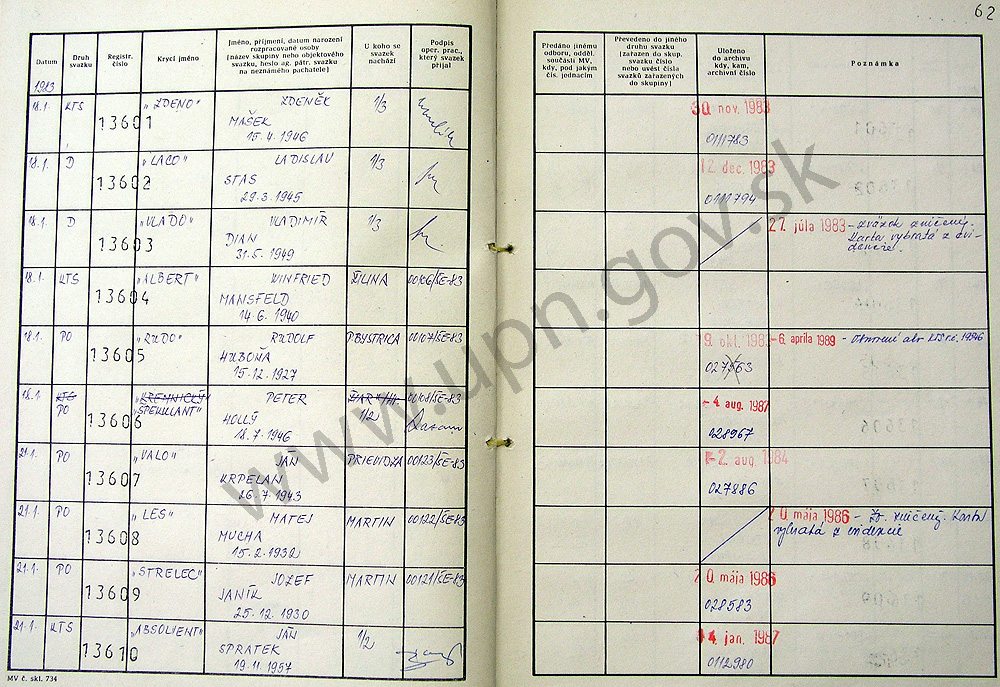 62
Datum
Druh svazku
Registr. číslo
Krycí jméno
Jméno, příjmení, datum narození
rozpracované osoby
(název skupiny nebo objektového
svazku, heslo ag. pátr. svazku
na neznámého pachatele)
U koho se
svazek
nachází
Podpis
oper. prac.,
který svazek
přijal
Předáno jinému
odboru, odděl.
součásti MV,
kdy, pod jakým
čís. jednacím
Převedeno do jiného
druhu svazku
(zařazen do skup.
svazku číslo
nebo uvést čísla
svazků zařazených
do skupiny)
Uloženo
do archivu
kdy, kam,
archivní číslo
Poznámka
1983
18.1. KTS 13601 „ZDENO" ZDENĚK 1/3
MAŠEK
15.4.1946
30 nov. 1983
0111783
18.1. D 13602 „LACO" LADISLAV 1/3
STAS
29.3.1945
12. dec. 1983
0111794
18.1. D 13603 „VLADO" VLADIMÍR 1/3
DIAN
31.5.1949
27. júla 1983 - zväzok zničený.
Karta vybratá z evi-
dencie.
18.1. KTS 13604 „ALBERT" WINFRIED ŽILINA 00106/ŠE-83
MANSFELD
14.6.1940
18.1. PO 13605 „RUDO" RUDOLF P.BYSTRICA 00107/ŠE-83
HUBOŇA
15.12.1927
9. okt. 1983 - 6. apríla 1989 -
18.1. KTS PO 13606 „KREMNICKÝ" „ŠPEKULANT" PETER 1/2 00108/ŠE-83
HOLLÝ
18.7.1946
-4 aug. 1987
028967
21.1. PO 13607 „VALO" JÁN PRIEVIDZA 00123/ŠE-83
KRPELAN
26.7.1943
-2. aug. 1984
027886
21.1. PO 13608 „LES" MATEJ MARTIN 00122/ŠE-83
MUCHA
15.2.1932
20 mája 1986 - Zv. zničený. Karta
vybratá z evidencie
21.1. PO 13609 „STRELEC" JOZEF MARTIN 00121/ŠE-83
JANÍK
25.12.1930
20. mája 1986
028583
21.1. KTS 13610 „ABSOLVENT" JÁN 1/2
SPRATEK
19.11.1957
14. jan. 1987
0112980
MV č. skl. 734
www.upn.gov.sk